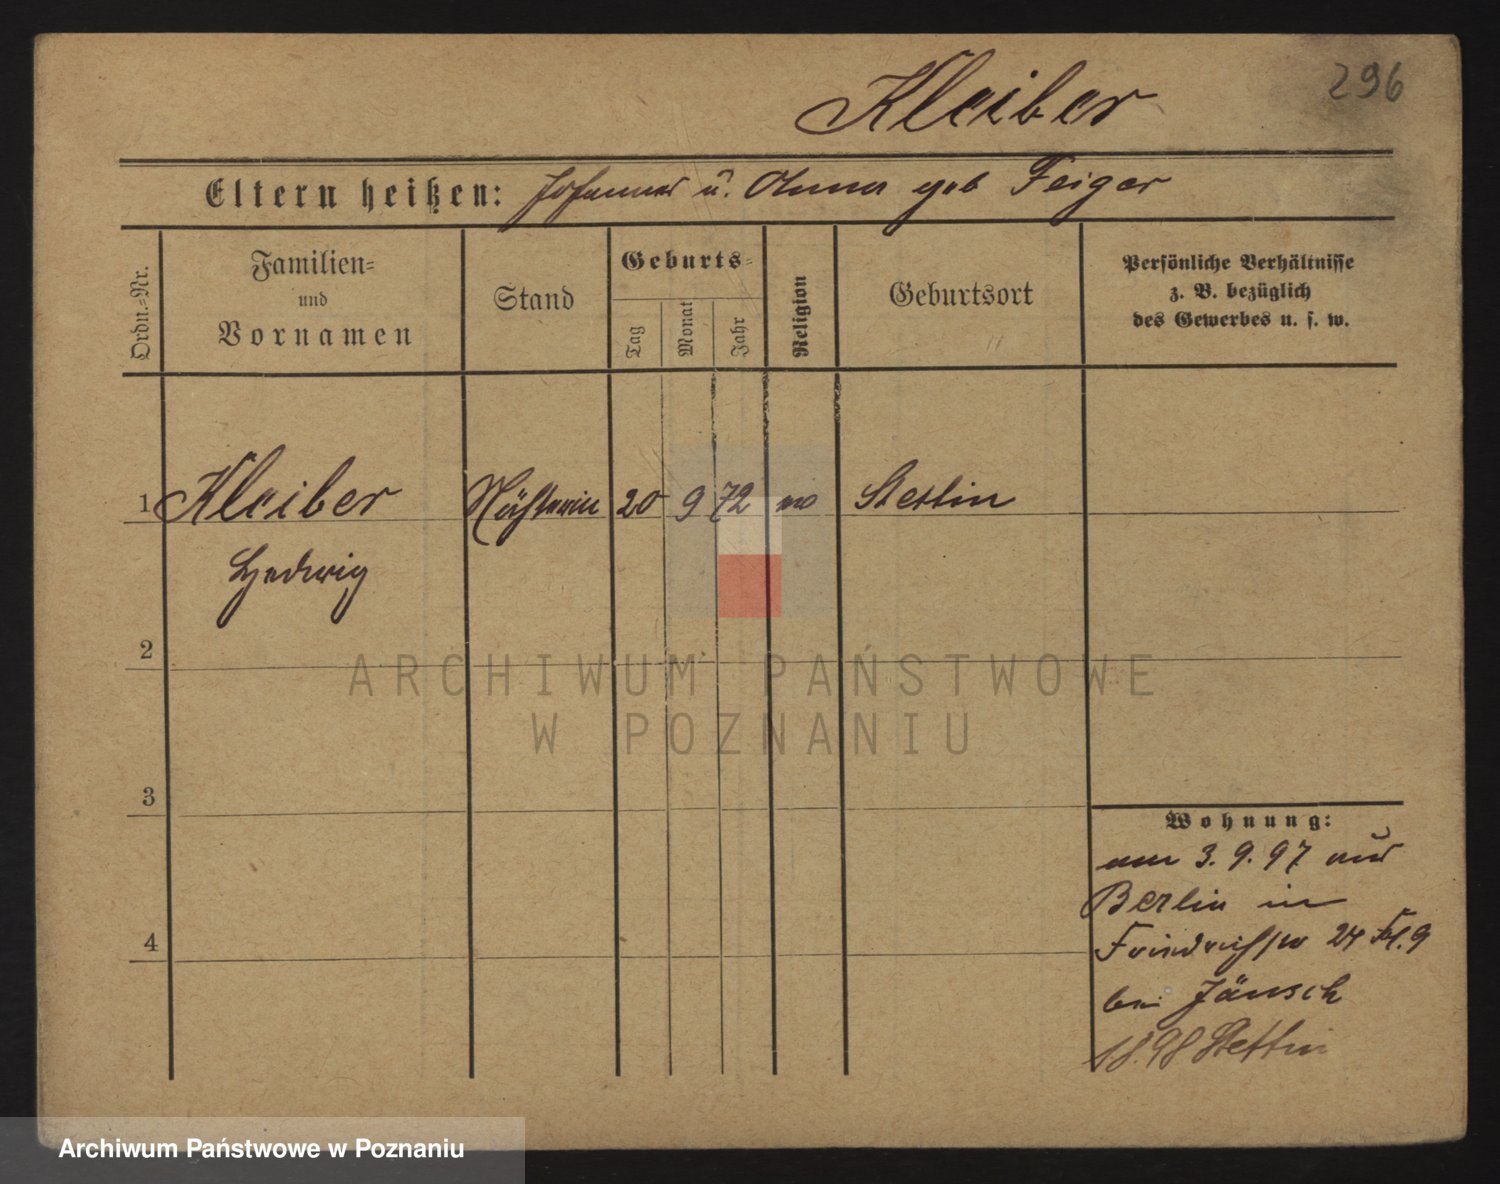 296
Kleiber
Eltern heißen: Johannes u. Anna geb Feiger
Ordn.=Nr.
Familien=
und
Vornamen
Stand
Geburts=
Tag
Monat
Jahr
Religion
Geburtsort
Persönliche Verhältnisse
z. B. bezüglich
des Gewerbes u. s. w.
1 Kleiber Nähterin 20 9 72 ev Stettin
Hedwig
2
3
4
ARCHIWUM PAŃSTWOWE
W POZNANIU
Wohnung:
am 3.9.97 aus
Berlin in
24 9
bei Jänsch
98 Stettin
Archiwum Państwowe w Poznaniu